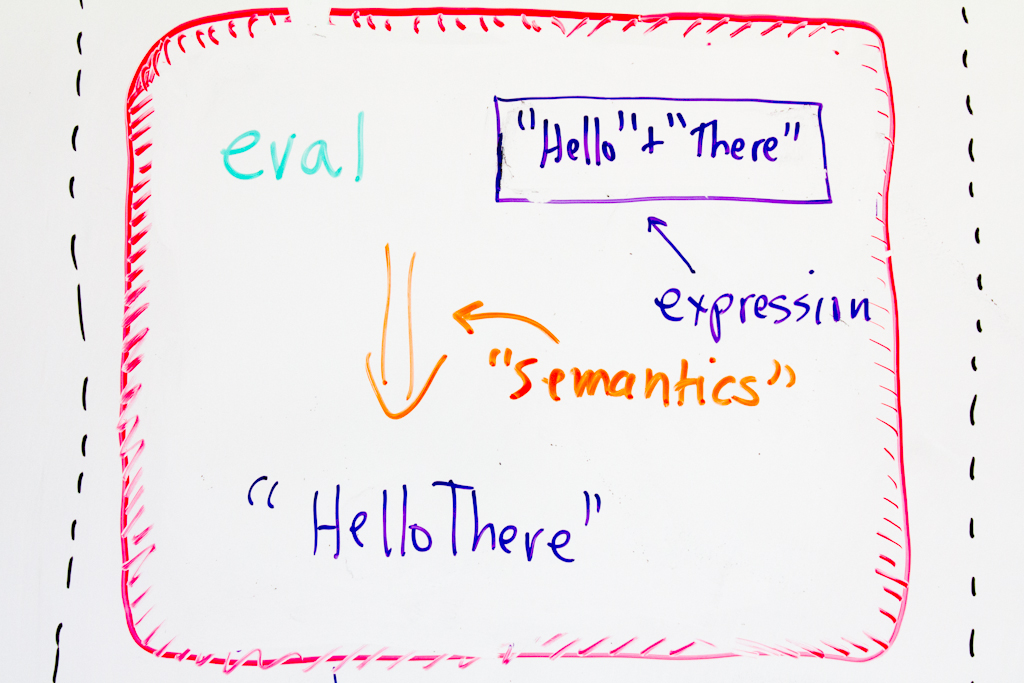 eval
"Hello" + "There"
expression
"Semantics"
"HelloThere"